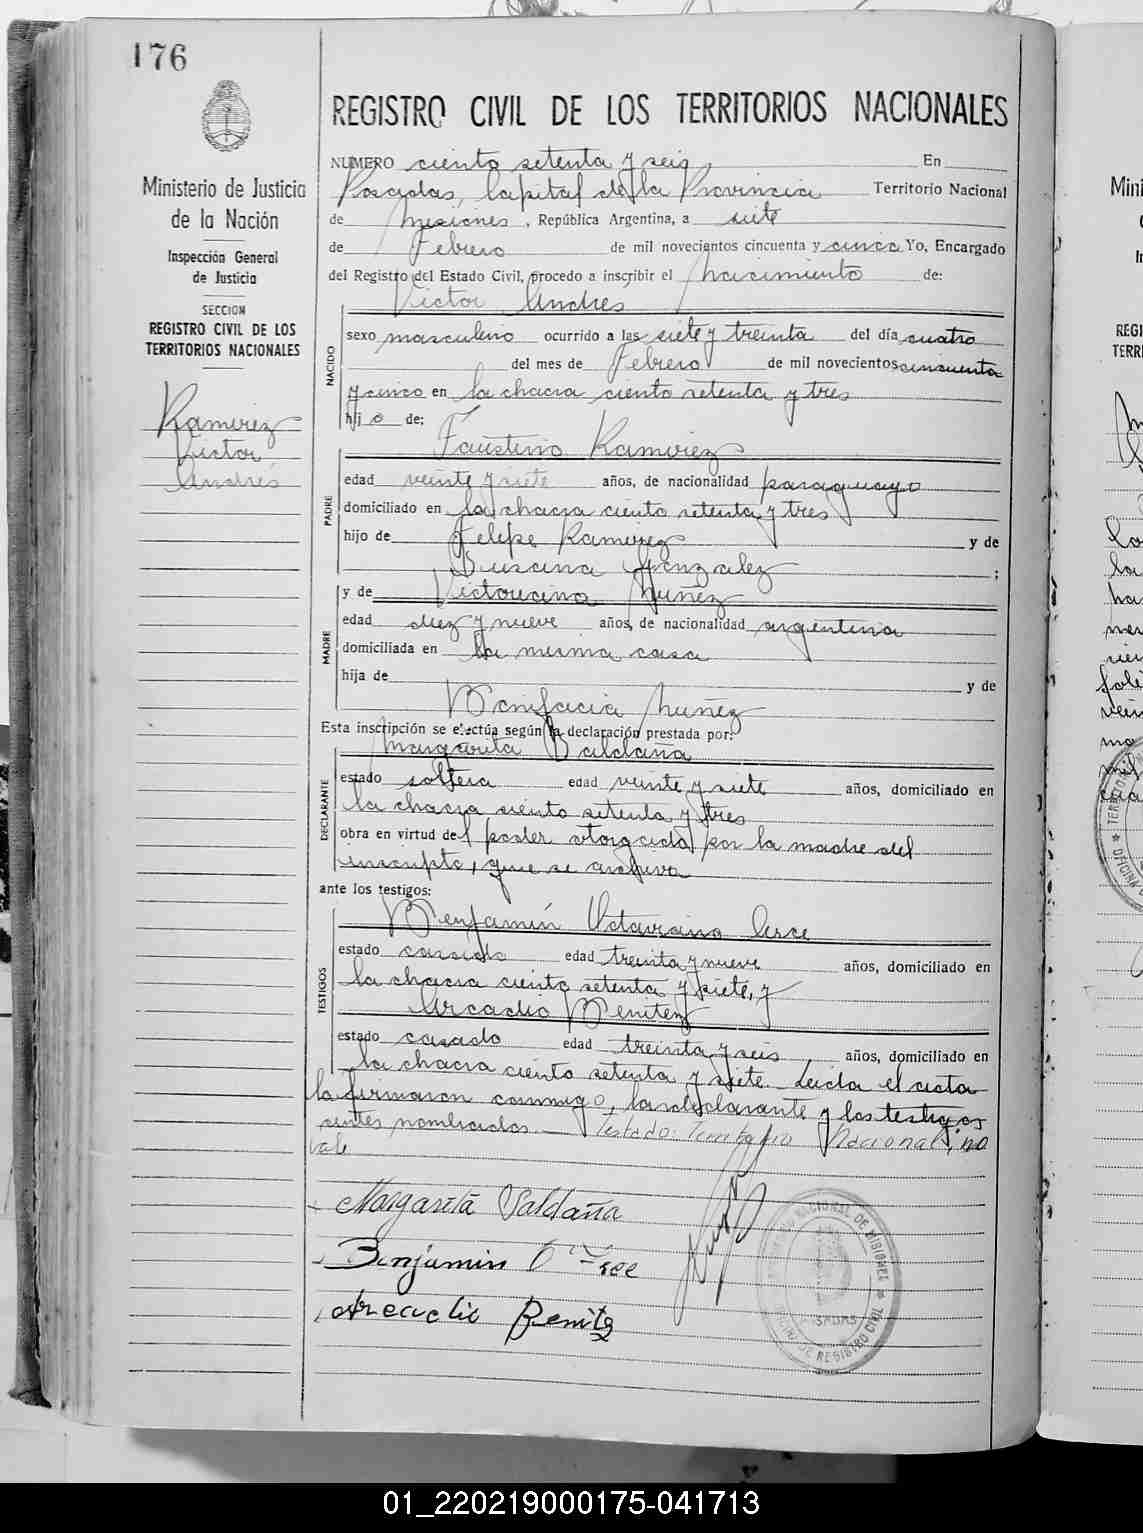 176
Ministerio de Justicia
de la Nación
Inspección General
de Justicia
SECCION
REGISTRO CIVIL DE LOS
TERRITORIOS NACIONALES
Ramirez
Victor
Andrés
REGISTRO CIVIL DE LOS TERRITORIOS NACIONALES
NUMERO ciento setenta y seis, En
Posadas, Capital de la Provincia Territorio Nacional
de Misiones, República Argentina, a siete
de Febrero de mil novecientos cincuenta y cinco Yo, Encargado
del Registro del Estado Civil, procedo a inscribir el nacimiento de:
Victor Andres
NACIDO
sexo masculino ocurrido a las siete y treinta del día cuatro
del mes de Febrero de mil novecientos cincuenta
y cinco en la chacra ciento setenta y tres
hijo de:
Faustino Ramirez
PADRE
edad veinte y siete años, de nacionalidad paraguayo
domiciliado en la chacra ciento setenta y tres
hijo de Felipe Ramirez y de
Susana Gonzalez ;
y de Victoriana Nuñez
MADRE
edad diez y nueve años, de nacionalidad argentina
domiciliada en la misma casa
hija de y de
Bonifacia Nuñez
Esta inscripción se efectúa según la declaración prestada por:
Margarita Baldaña
DECLARANTE
estado soltera edad veinte y siete años, domiciliado en
la chacra ciento setenta y tres
obra en virtud del poder otorgado por la madre del
inscripto, que se archiva
ante los testigos:
Benjamín Octaviano Arce
TESTIGOS
estado casado edad treinta y nueve años, domiciliado en
la chacra ciento setenta y siete, y
Arcadio Benitez
estado casado edad treinta y seis años, domiciliado en
la chacra ciento setenta y siete. Leida el acta
la firmaron conmigo, la declarante y los testigos
antes nombrados. Testado: Territorio Nacional; no
vale
Margarita Saldaña
Benjamin O Arce
Arcadio Benitez
NACIONAL DE MISIONES
POSADAS
OFICINA DE REGISTRO CIVIL
01_220219000175-041713